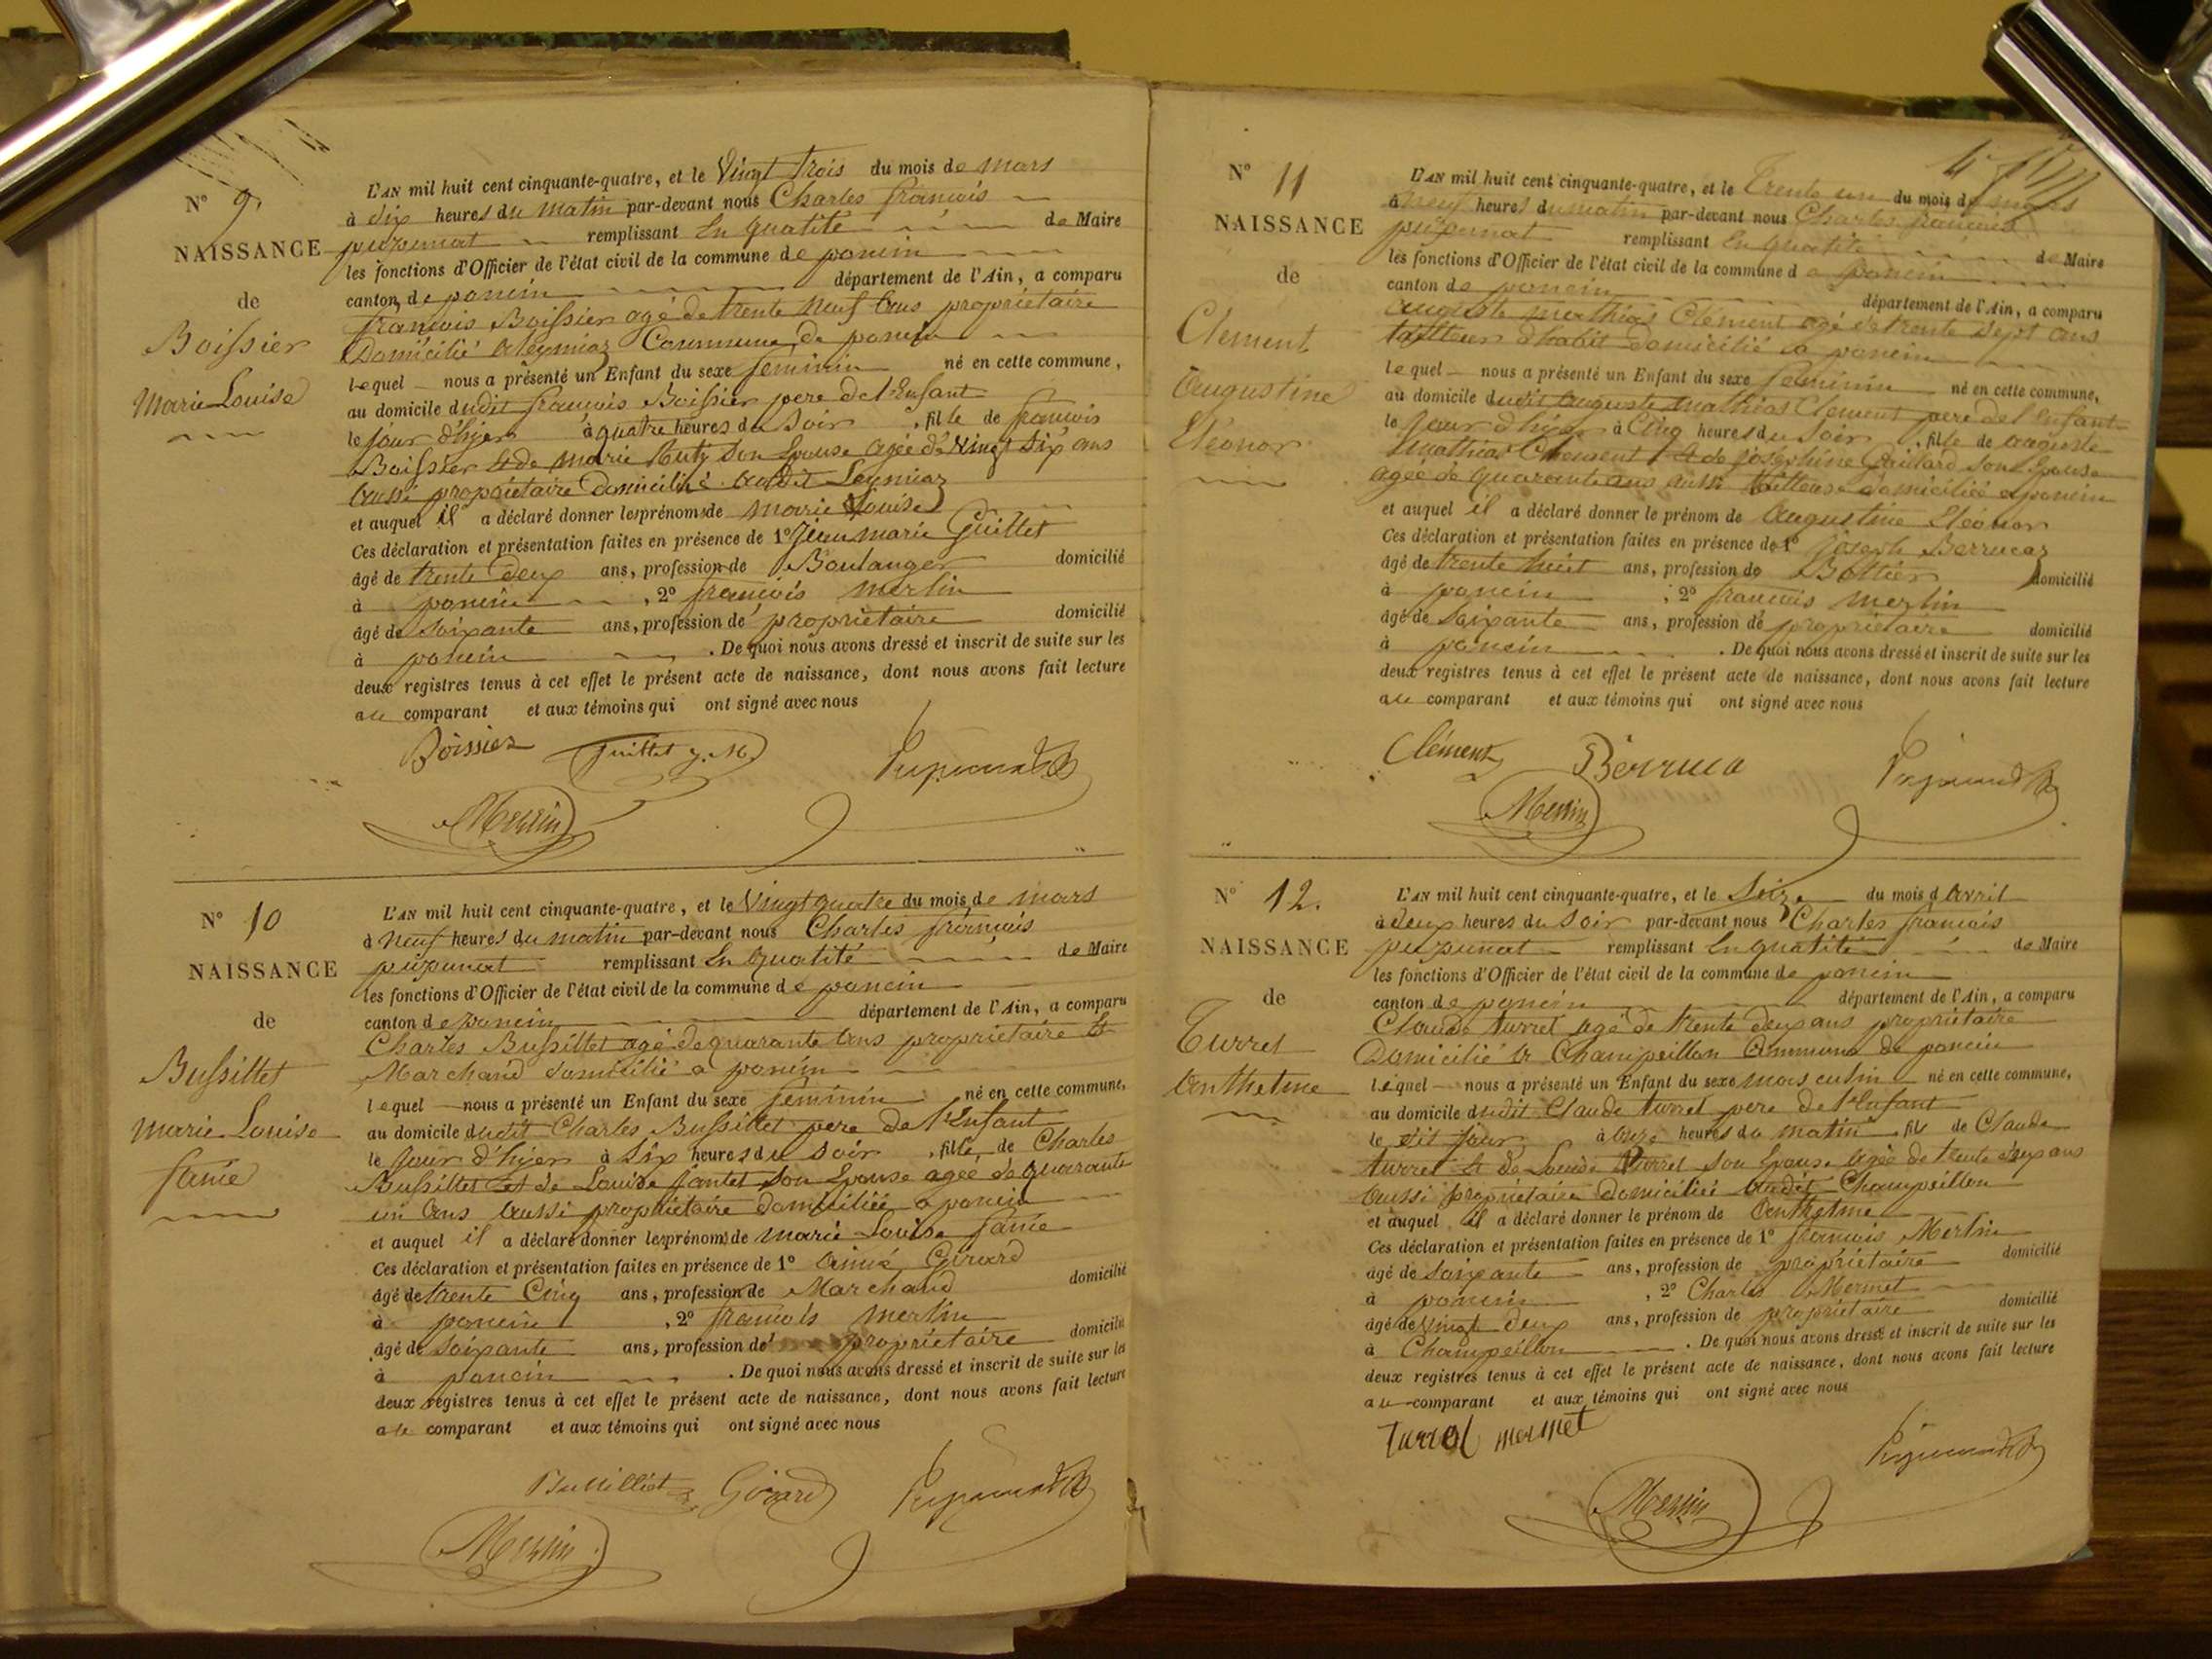 N° 9.
NAISSANCE
de
Boissier
Marie Louise
L'AN mil huit cent cinquante-quatre, et le Vingt Trois du mois de mars
à dix heures du matin par-devant nous Charles françois
remplissant En qualité de Maire
les fonctions d'Officier de l'état civil de la commune de poncin
canton de poncin département de l'Ain, a comparu
françois Boissier agé de trente neuf ans propriétaire
Domicilié a Leymiaz Commune de poncin
lequel nous a présenté un Enfant du sexe féminin né en cette commune,
au domicile dudit françois Boissier pere de l'Enfant
le jour d'hier à quatre heures du Soir , fille de françois
Boissier Et de marie Ruty Son Epouse agée de Vingt Six ans
aussi propriétaire Domiciliée audit Leymiaz
et auquel il a déclaré donner les prénoms de marie Louise
Ces déclaration et présentation faites en présence de 1° Jean marie Guillet
âgé de trente deux ans, profession de Boulanger domicilié
à poncin , 2° françois merlin
âgé de soixante ans, profession de propriétaire domicilié
à poncin . De quoi nous avons dressé et inscrit de suite sur les
deux registres tenus à cet effet le présent acte de naissance, dont nous avons fait lecture
au comparant et aux témoins qui ont signé avec nous
Boissier Guillet J. M.
Merlin
N° 10
NAISSANCE
de
Bussillet
marie Louise
fanie
L'AN mil huit cent cinquante-quatre, et le Vingt quatre du mois de mars
à neuf heures du matin par-devant nous Charles françois
remplissant En qualité de Maire
les fonctions d'Officier de l'état civil de la commune de poncin
canton de poncin département de l'Ain, a comparu
Charles Bussillet agé de quarante ans propriétaire Et
Marchand domicilié a poncin
lequel nous a présenté un Enfant du sexe féminin né en cette commune,
au domicile dudit Charles Bussillet pere de l'Enfant
le jour d'hier à Six heures du soir , fille de Charles
Bussillet et de Louise Jantet son Epouse agée de quarante
un ans aussi propriétaire domiciliée a poncin
et auquel il a déclaré donner les prénoms de marie Louise fanie
Ces déclaration et présentation faites en présence de 1° aimé Girard
âgé de trente Cinq ans, profession de Marchand domicilié
à poncin , 2° françois merlin
âgé de soixante ans, profession de propriétaire domicilié
à poncin . De quoi nous avons dressé et inscrit de suite sur les
deux registres tenus à cet effet le présent acte de naissance, dont nous avons fait lecture
au comparant et aux témoins qui ont signé avec nous
Bussilliet Girard
Merlin
N° 11
NAISSANCE
de
Clement
Augustine
Eléonor
L'AN mil huit cent cinquante-quatre, et le Trente un du mois de mars
à neuf heures du matin par-devant nous Charles françois
remplissant En qualité de Maire
les fonctions d'Officier de l'état civil de la commune de poncin
canton de poncin département de l'Ain, a comparu
auguste mathias Clément agé de trente Sept ans
tailleur d'habit domicilié a poncin
lequel nous a présenté un Enfant du sexe féminin né en cette commune,
au domicile dudit auguste mathias Clement pere de l'Enfant
le jour d'hier à Cinq heures du Soir , fille de auguste
mathias Clement Et de josephine Gaillard son Epouse
agée de quarante ans aussi tailleuse domiciliée a poncin
et auquel il a déclaré donner le prénom de Augustine Eléonor
Ces déclaration et présentation faites en présence de 1° joseph Berrucaz
âgé de trente huit ans, profession de Bottier domicilié
à poncin , 2° françois merlin
âgé de Soixante ans, profession de propriétaire domicilié
à poncin . De quoi nous avons dressé et inscrit de suite sur les
deux registres tenus à cet effet le présent acte de naissance, dont nous avons fait lecture
au comparant et aux témoins qui ont signé avec nous
Clément Berruca
Merlin
N° 12.
NAISSANCE
de
Turrel
Anthelme
L'AN mil huit cent cinquante-quatre, et le Seize du mois d'avril
à deux heures du Soir par-devant nous Charles françois
remplissant En qualité de Maire
les fonctions d'Officier de l'état civil de la commune de poncin
canton de poncin département de l'Ain, a comparu
Claude turrel agé de trente deux ans propriétaire
Domicilié a Champeillon Commune de poncin
lequel nous a présenté un Enfant du sexe masculin né en cette commune,
au domicile dudit Claude turrel pere de l'Enfant
le dit jour à onze heures du matin fils de Claude
turrel Et de Louise turrel son Epouse agée de trente deux ans
aussi propriétaire domiciliée audit Champeillon
et auquel il a déclaré donner le prénom de anthelme
Ces déclaration et présentation faites en présence de 1° françois Merlin
âgé de soixante ans, profession de propriétaire domicilié
à poncin , 2° Charles Mermet
âgé de vingt deux ans, profession de propriétaire domicilié
à Champeillon . De quoi nous avons dressé et inscrit de suite sur les
deux registres tenus à cet effet le présent acte de naissance, dont nous avons fait lecture
au comparant et aux témoins qui ont signé avec nous
Turrel mermet
Merlin